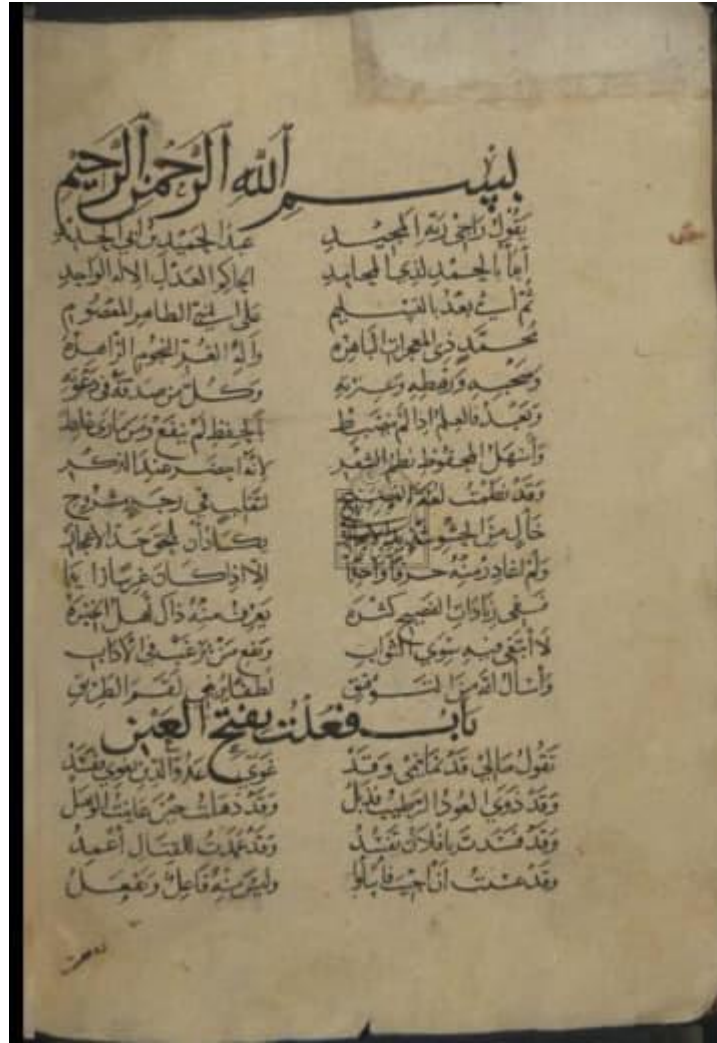 بسم الله الرحمن الرحيم
يقول راجي ربه المجيد عبد الحميد بن أبي الحديد
أبدأ بالحمد لذي المحامد الحاكم العدل الإله الواحد
ثم أثني بعد بالتسليم على النبي الطاهر المعصوم
محمد ذي المعجزات الباهره وآله الغر النجوم الزاهره
وصحبه ورهطه وعزته وكل من صدقه في دعوته
وبعد فالعلم إذا لم ينضبط بالحفظ لم ينفع ومن مارى غلط
وأسهل المحفوظ نظم الشعر لأنه أحضر عند الذكر
وقد نظمت لغة الفصيح في رجز مشروح
خال من الحشو يكاد أن
ولم أغادر منه حرفا واحدا إلا إذا كان
ففي زيادات الفصيح كثره يعرف منه ذاك أهل الخبره
لا أبتغي فيه سوى الثواب ونفع من يرغب في الآداب
وأسأل الله من التوفيق لطفا
باب فعلت بفتح العين
تقول مالي قد نما ينمي وقد غوى عدو الدين يغوي بفند
وقد ذوى العود الرطيب فذبل وقد ذهلت حين عاينت الوهل
وقد فسدت يا فلان تفسد وقد عمدت للقتال أعمد
وقد عسيت أن فابلوا وليس منه فاعل ويفعل